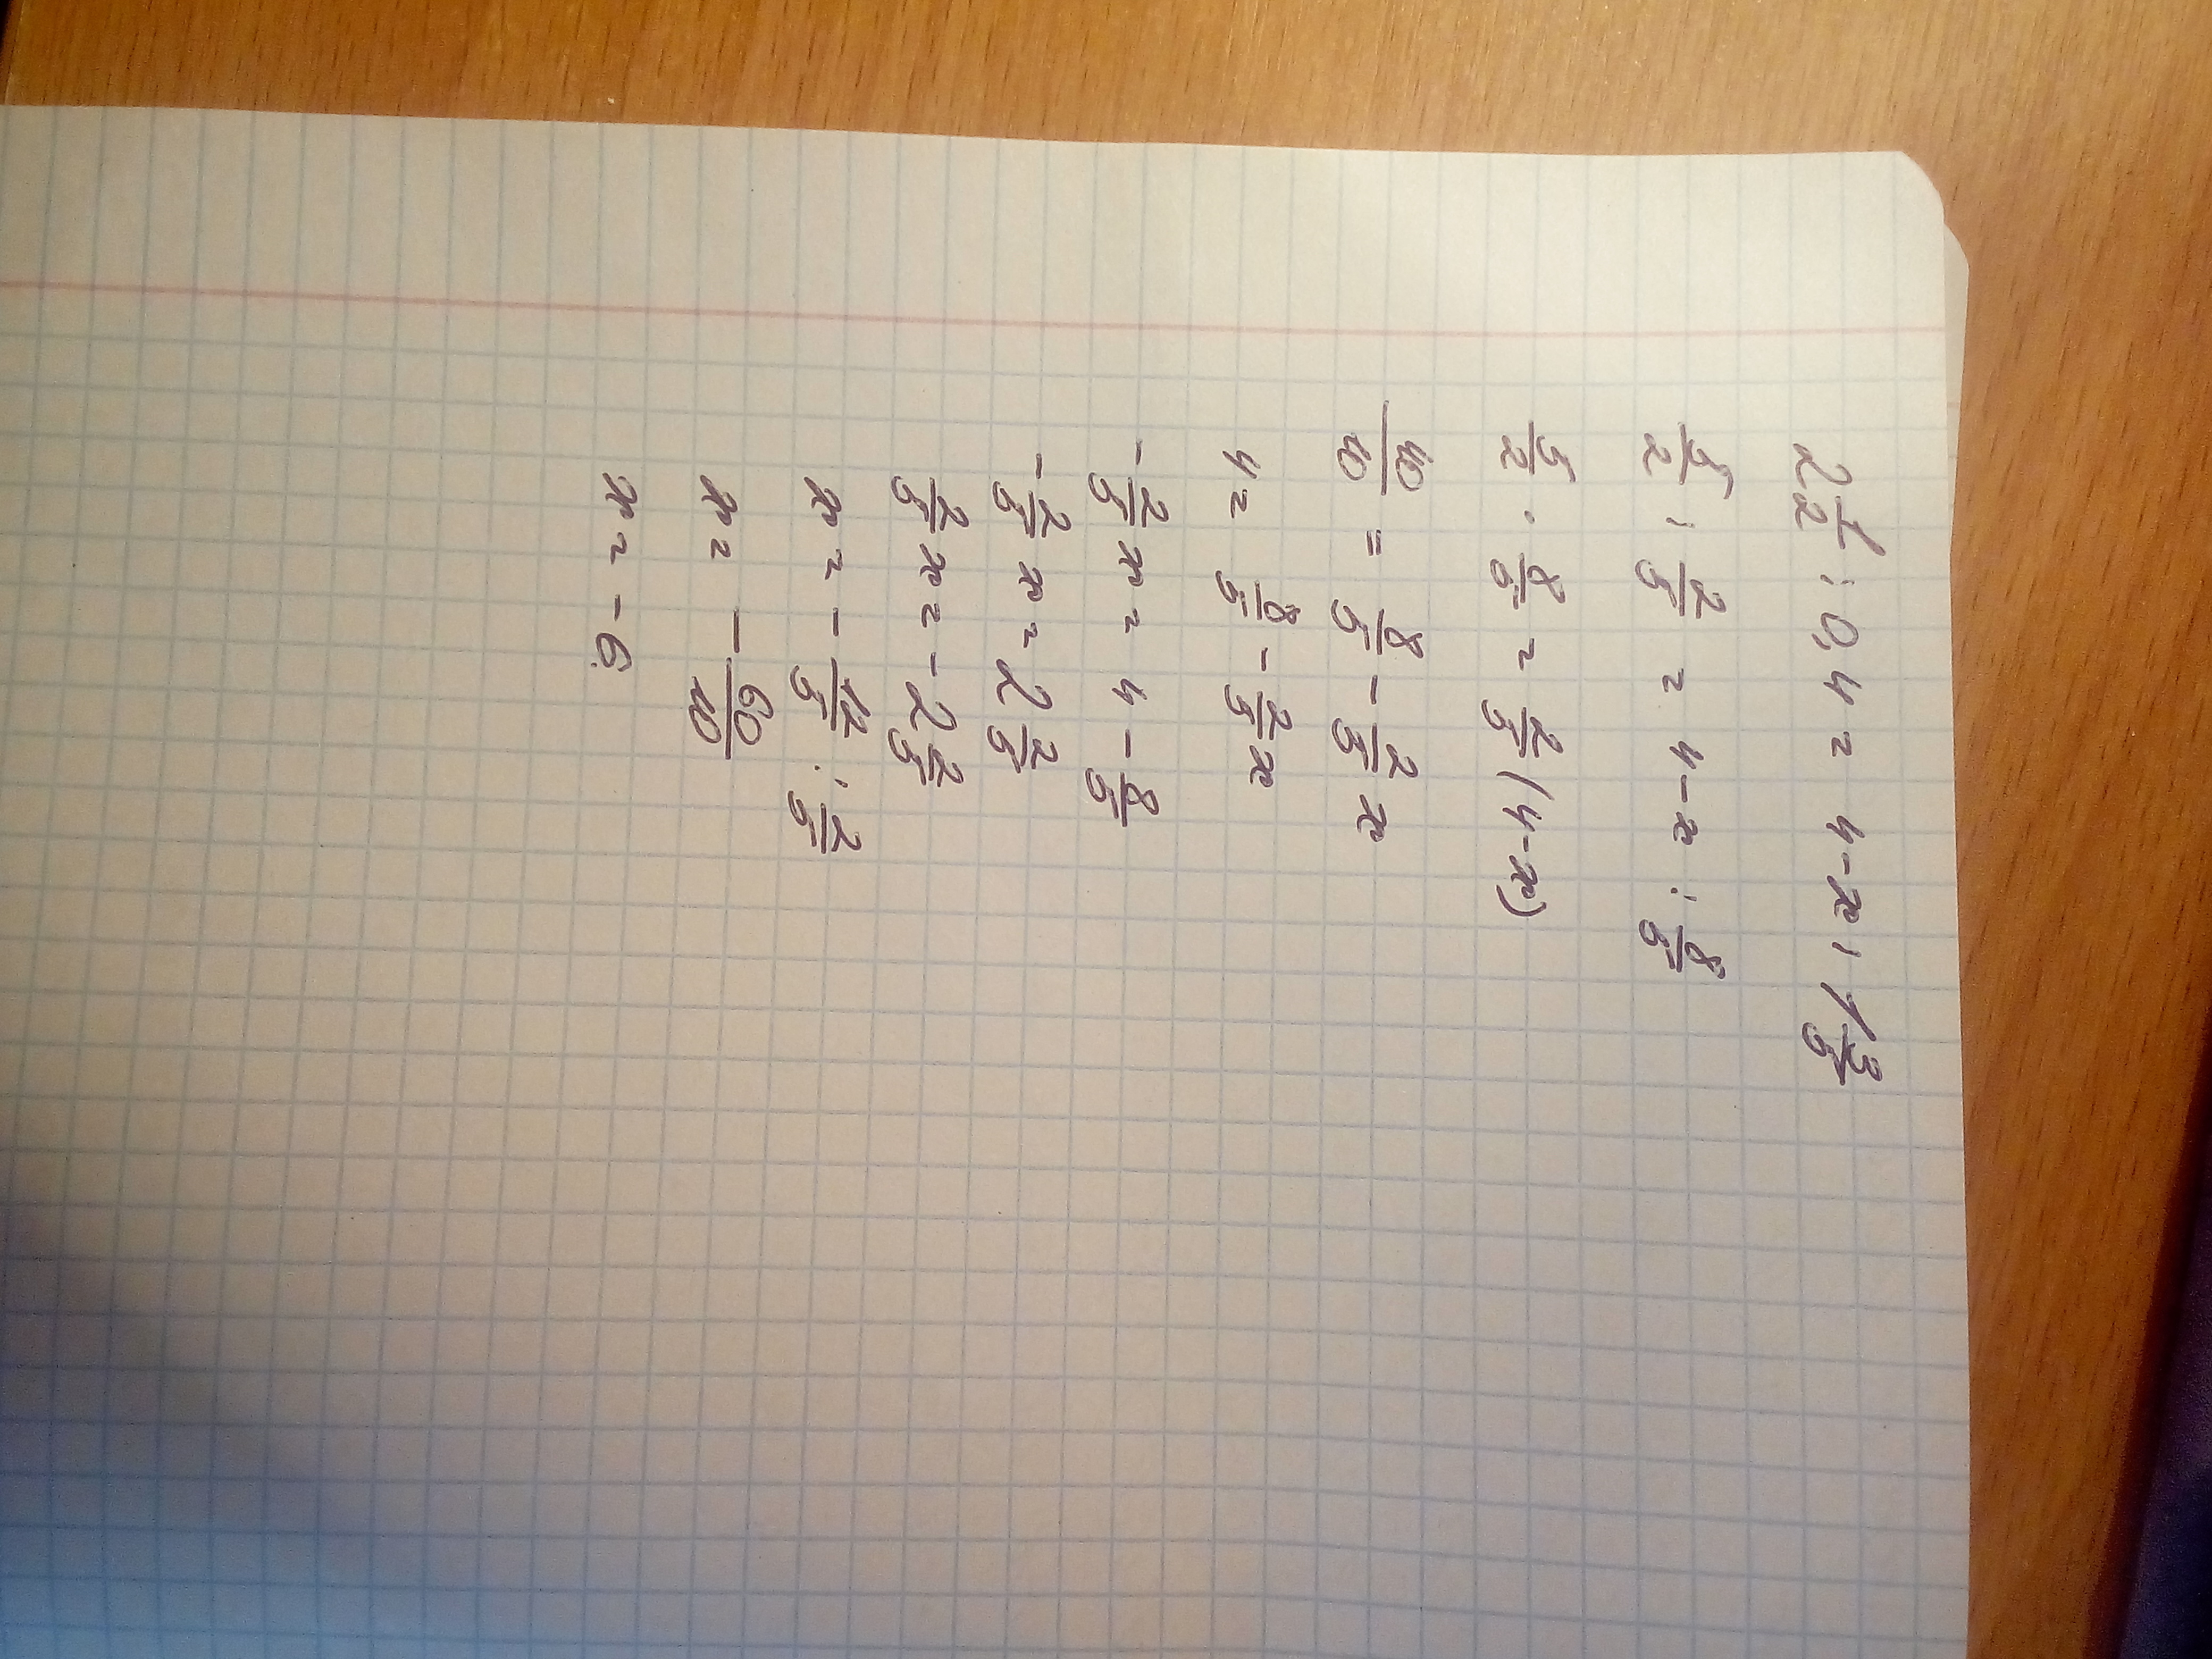 2 1/2 : 0,4 = 4-x : 1 3/5
5/2 : 2/5 = 4-x : 8/5
5/2 · 8/5 = 2/5 (4-x)
40/10 = 8/5 - 2/5 x
4 = 8/5 - 2/5 x
- 2/5 x = 4 - 8/5
- 2/5 x = 2 2/5
2/5 x = - 2 2/5
x = - 12/5 : 2/5
x = - 60/10
x = - 6